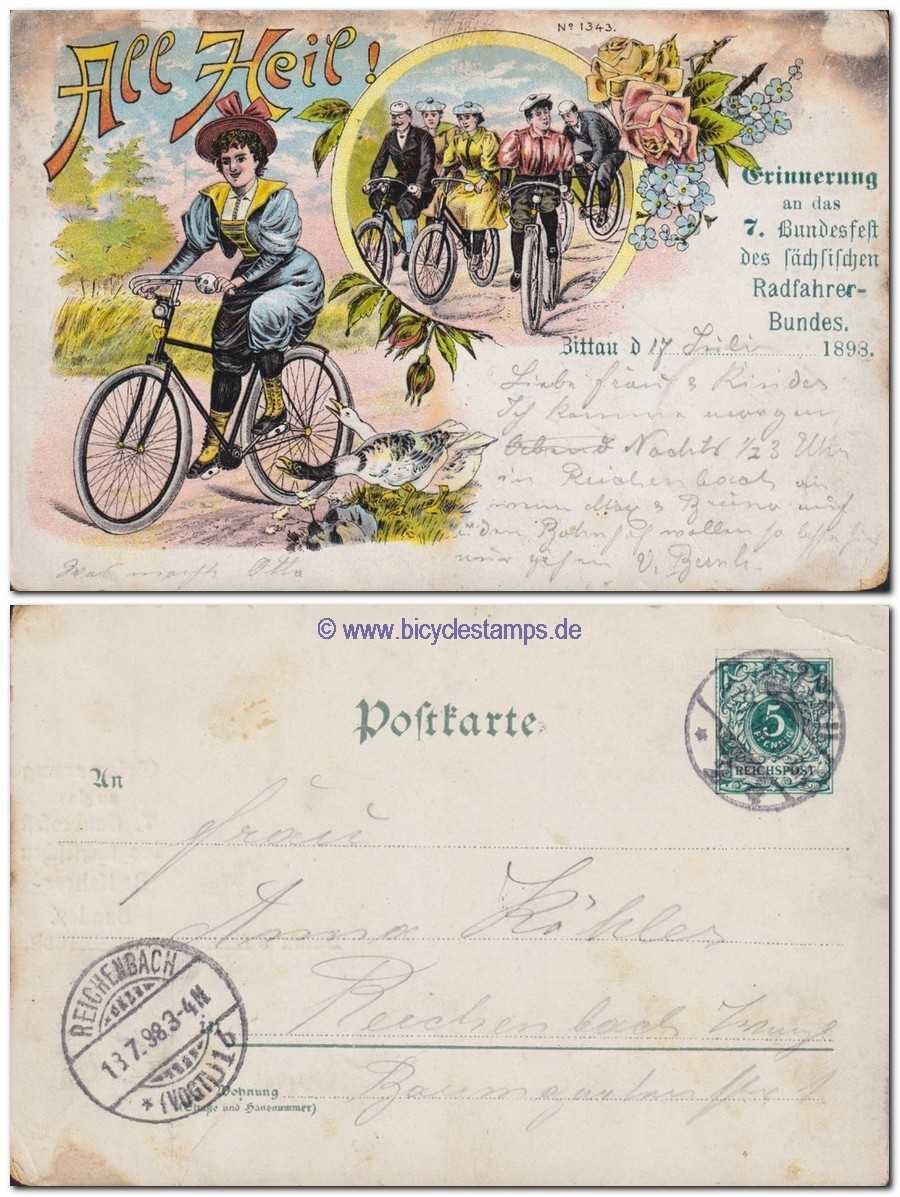 All Heil!
Nº 1343.
Erinnerung
an das
7. Bundesfest
des sächsischen
Radfahrer-
Bundes.
Zittau d 17 Juli 1898.
Liebe Frau & Kinder
Ich komme morgen
Abend Nachts 1/2 3 Uhr
in Reichenbach an
wenn Max & Bruno auf
den Bahnhof wollen so
nur gehen
Was macht Otto
© www.bicyclestamps.de
Postkarte
5
PFENNIG
REICHSPOST
An
Frau
Anna Köhler
in Reichenbach
REICHENBACH
18.7.98.3-4N
* (VOGTL) 1b
Wohnung
(Straße und Hausnummer)